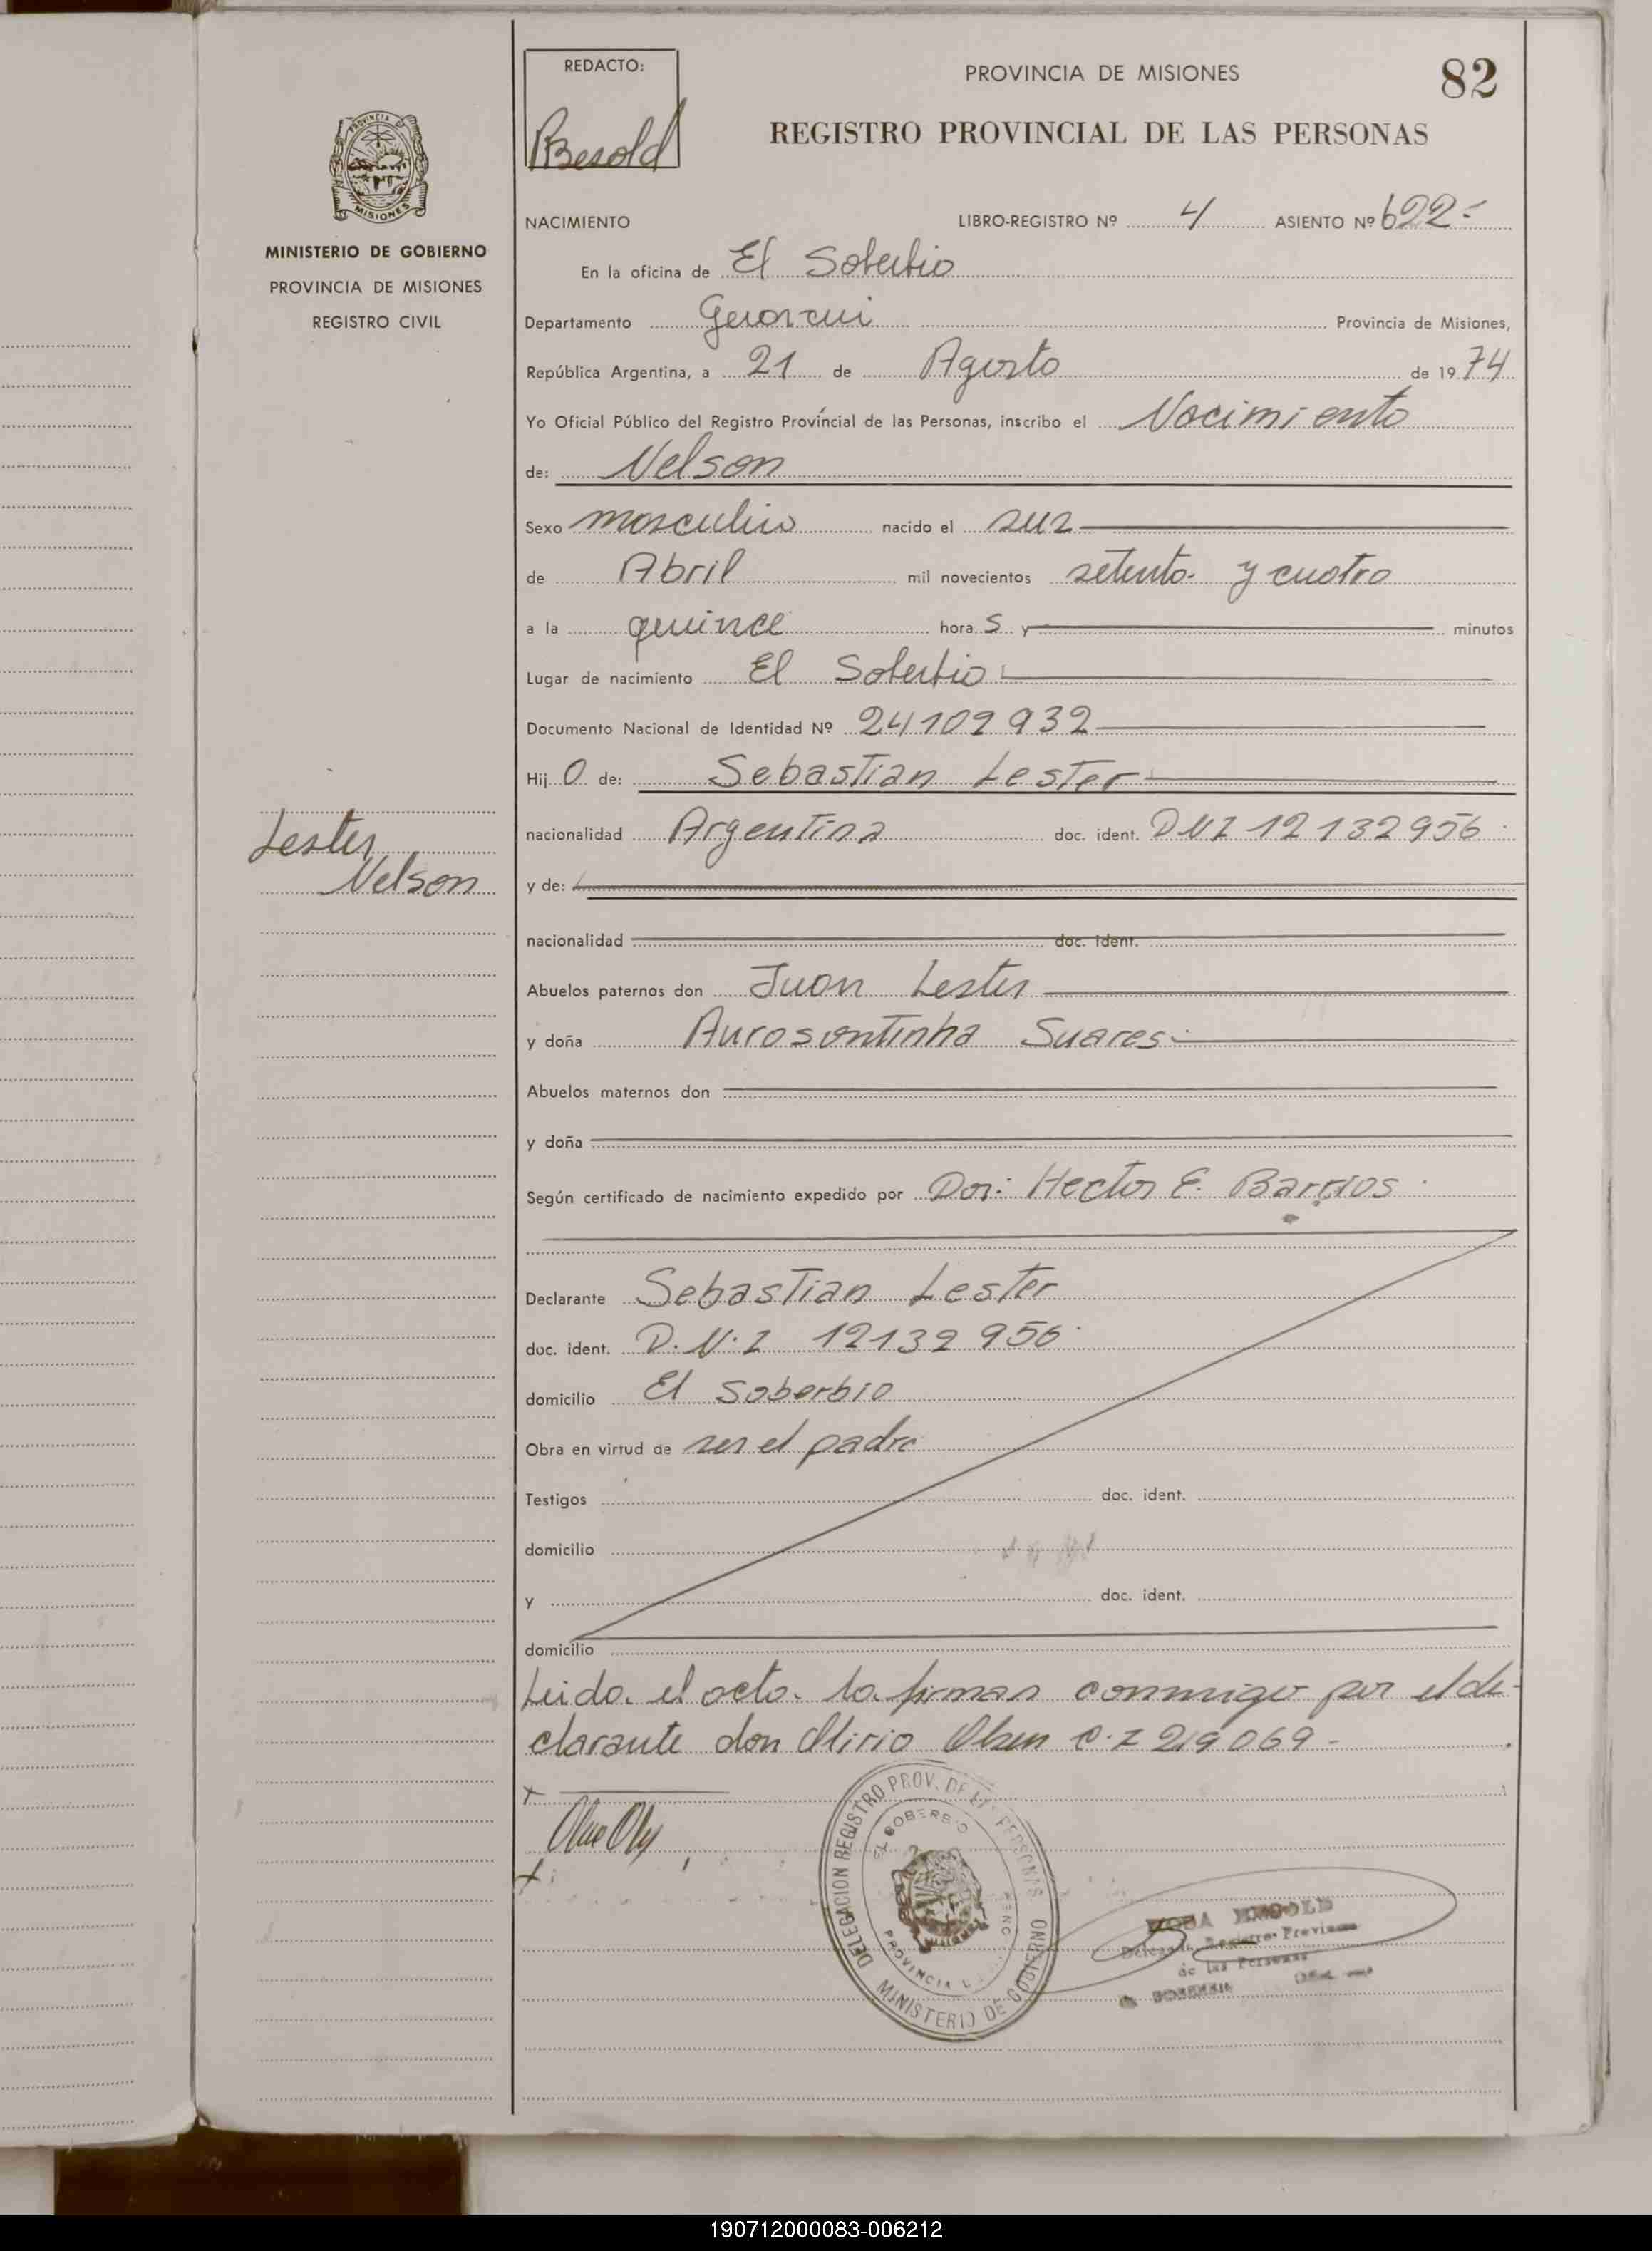 REDACTO:
Besold
PROVINCIA DE MISIONES
82
REGISTRO PROVINCIAL DE LAS PERSONAS
PROVINCIA DE
MISIONES
MINISTERIO DE GOBIERNO
PROVINCIA DE MISIONES
REGISTRO CIVIL
NACIMIENTO LIBRO-REGISTRO Nº 4 ASIENTO Nº 622
En la oficina de El Soberbio
Departamento Guaraní Provincia de Misiones,
República Argentina, a 21 de Agosto de 1974
Yo Oficial Público del Registro Provincial de las Personas, inscribo el Nacimiento
de: Nelson
Sexo masculino nacido el seis
de Abril mil novecientos setenta y cuatro
a la quince hora s y minutos
Lugar de nacimiento El Soberbio
Documento Nacional de Identidad Nº 24109932
Hij o de: Sebastian Lester
nacionalidad Argentina doc. ident. DNI 12132956
Lester
Nelson
y de:
nacionalidad doc. ident.
Abuelos paternos don Juan Lester
y doña Suares
Abuelos maternos don
y doña
Según certificado de nacimiento expedido por Dor: Hector E. Barrios
Declarante Sebastian Lester
doc. ident. D.N.I 12132956
domicilio El Soberbio
Obra en virtud de ser el padre
Testigos doc. ident.
domicilio
y doc. ident.
domicilio
Leida el acta la firman conmigo por el de-
clarante don Olsen C.I 219069
DELEGACION REGISTRO PROV. DE LAS PERSONAS
EL SOBERBIO
PROVINCIA
MINISTERIO DE GOBIERNO
BESOLD
de las Personas
190712000083-006212